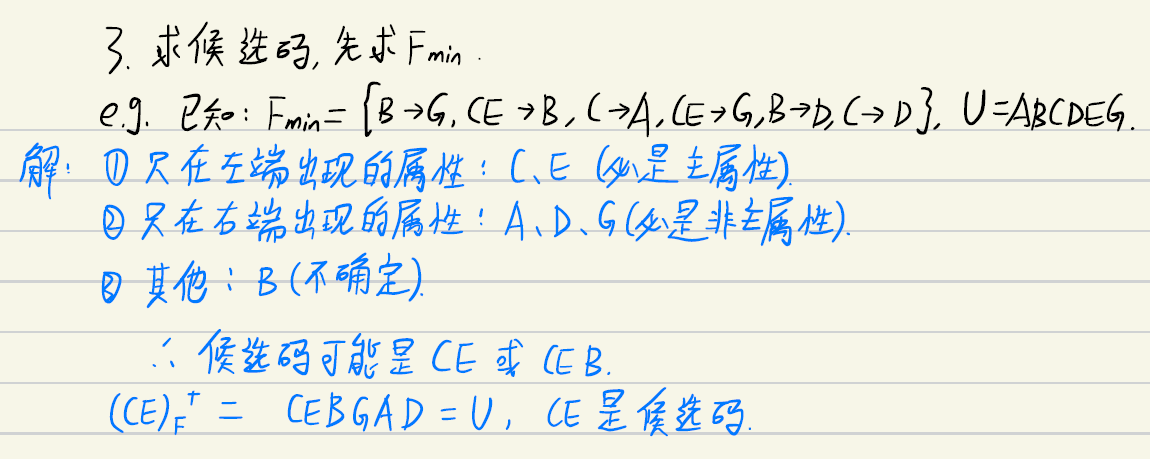 3. 求候选码, 先求Fmin.
e.g. 已知: Fmin = {B→G, CE→B, C→A, CE→G, B→D, C→D}, U=ABCDEG.
解: ① 只在左端出现的属性: C、E (必是主属性).
② 只在右端出现的属性: A、D、G (必是非主属性).
③ 其他: B (不确定).
∴ 候选码可能是 CE 或 CEB.
(CE)F⁺ = CEBGAD = U, CE 是候选码.